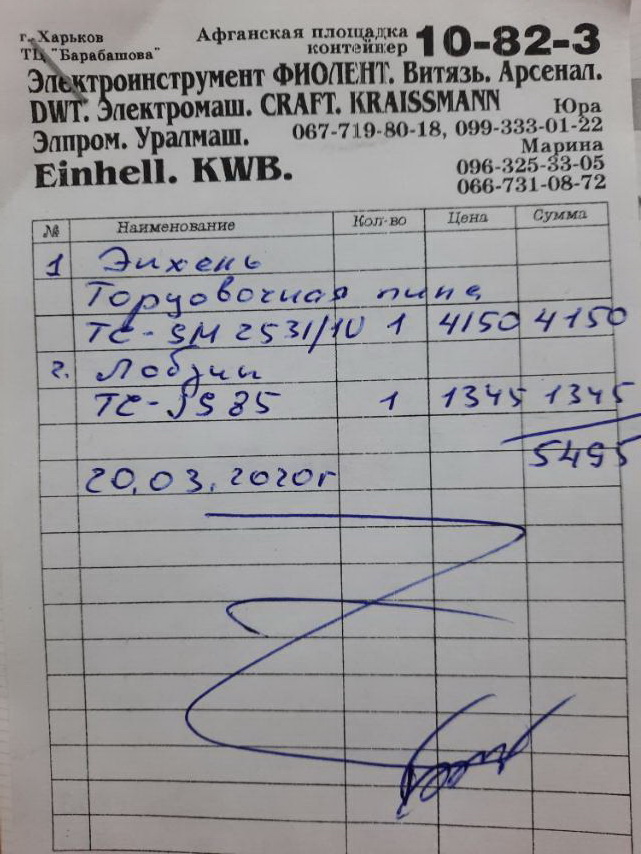 г. Харьков
ТЦ "Барабашова"
Афганская площадка
контейнер 10-82-3
Электроинструмент ФИОЛЕНТ. Витязь. Арсенал.
DWT. Электромаш. CRAFT. KRAISSMANN
Юра
Элпром. Уралмаш. 067-719-80-18, 099-333-01-22
Марина
Einhell. KWB. 096-325-33-05
066-731-08-72
№ Наименование Кол-во Цена Сумма
1 Энхень
Торцовочная пила
TC-SM 2531/1U 1 4150 4150
2. Лобзик
TC-JS 85 1 1345 1345
5495
20.03.2020г